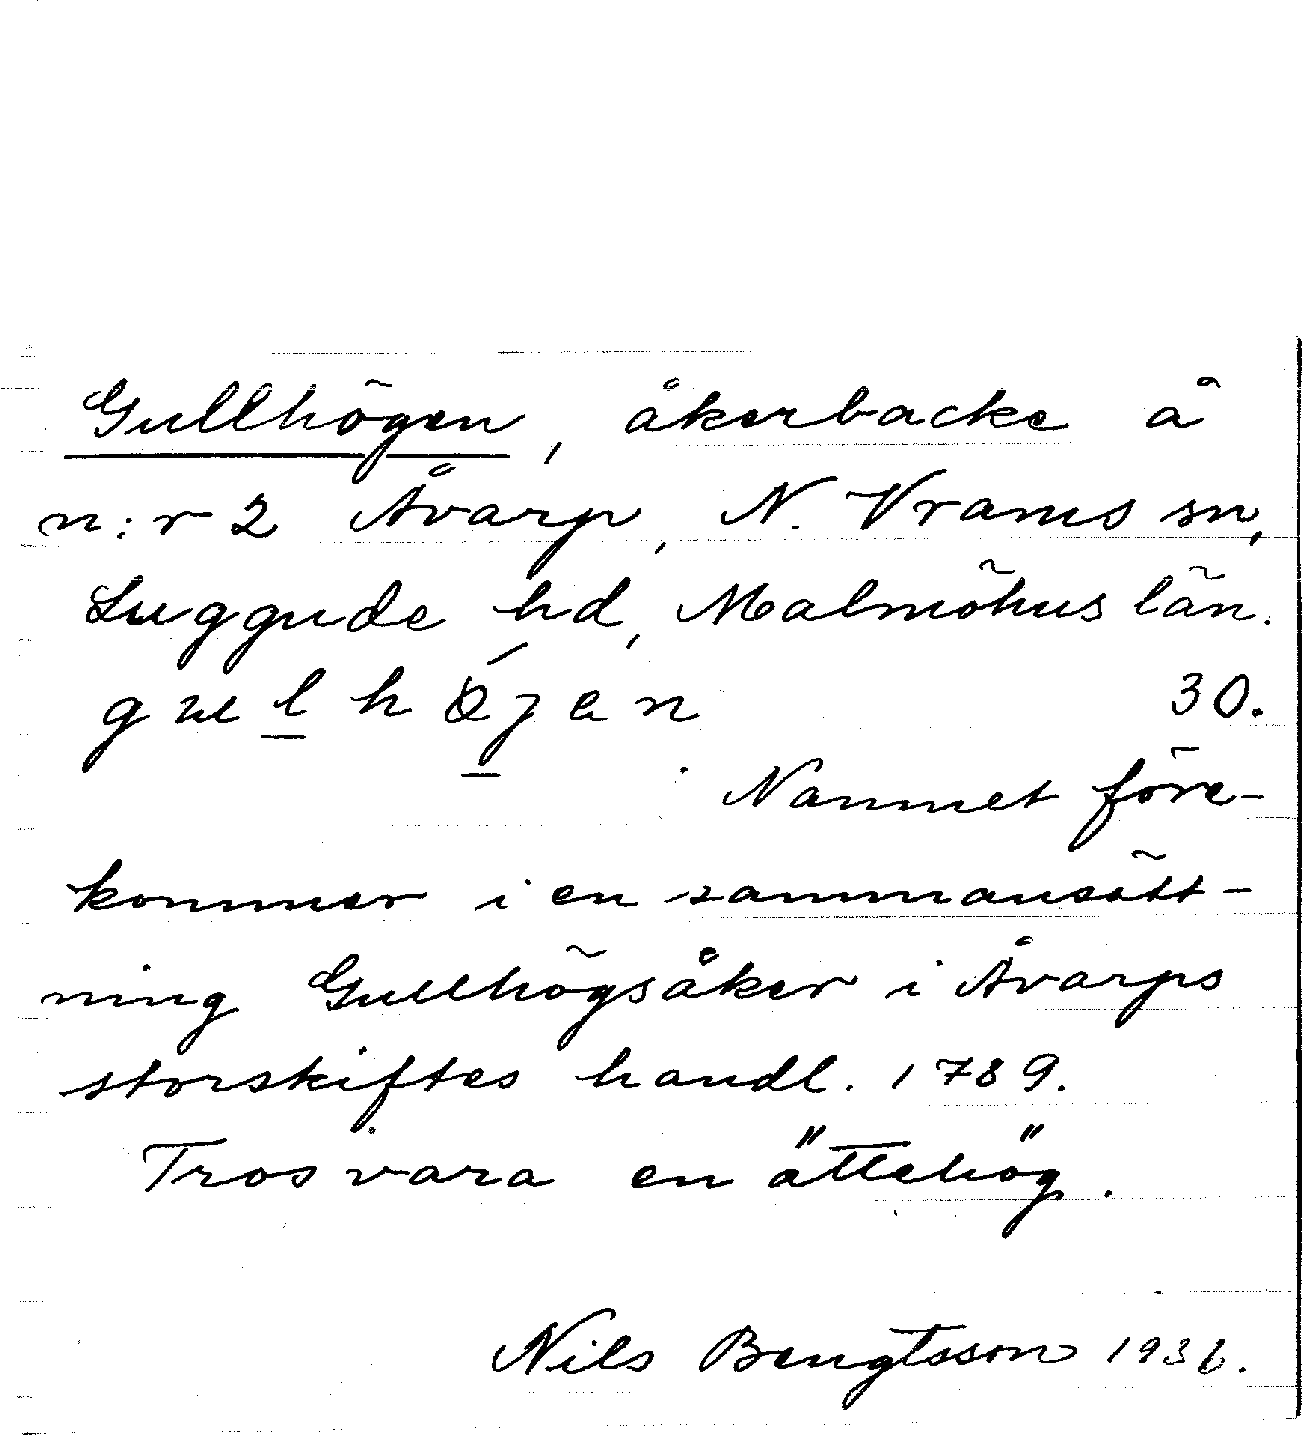 Gullhögen, åkerbacke å
n:r 2 Åvarp, N. Vrams sn,
Luggude hd, Malmöhus län.
gulhǿjen 30.
Namnet före-
kommer i en sammansätt-
ning Gullhögsåker i Åvarps
storskiftes handl. 1789.
Tros vara en ättehög.
Nils Bengtsson 1936.